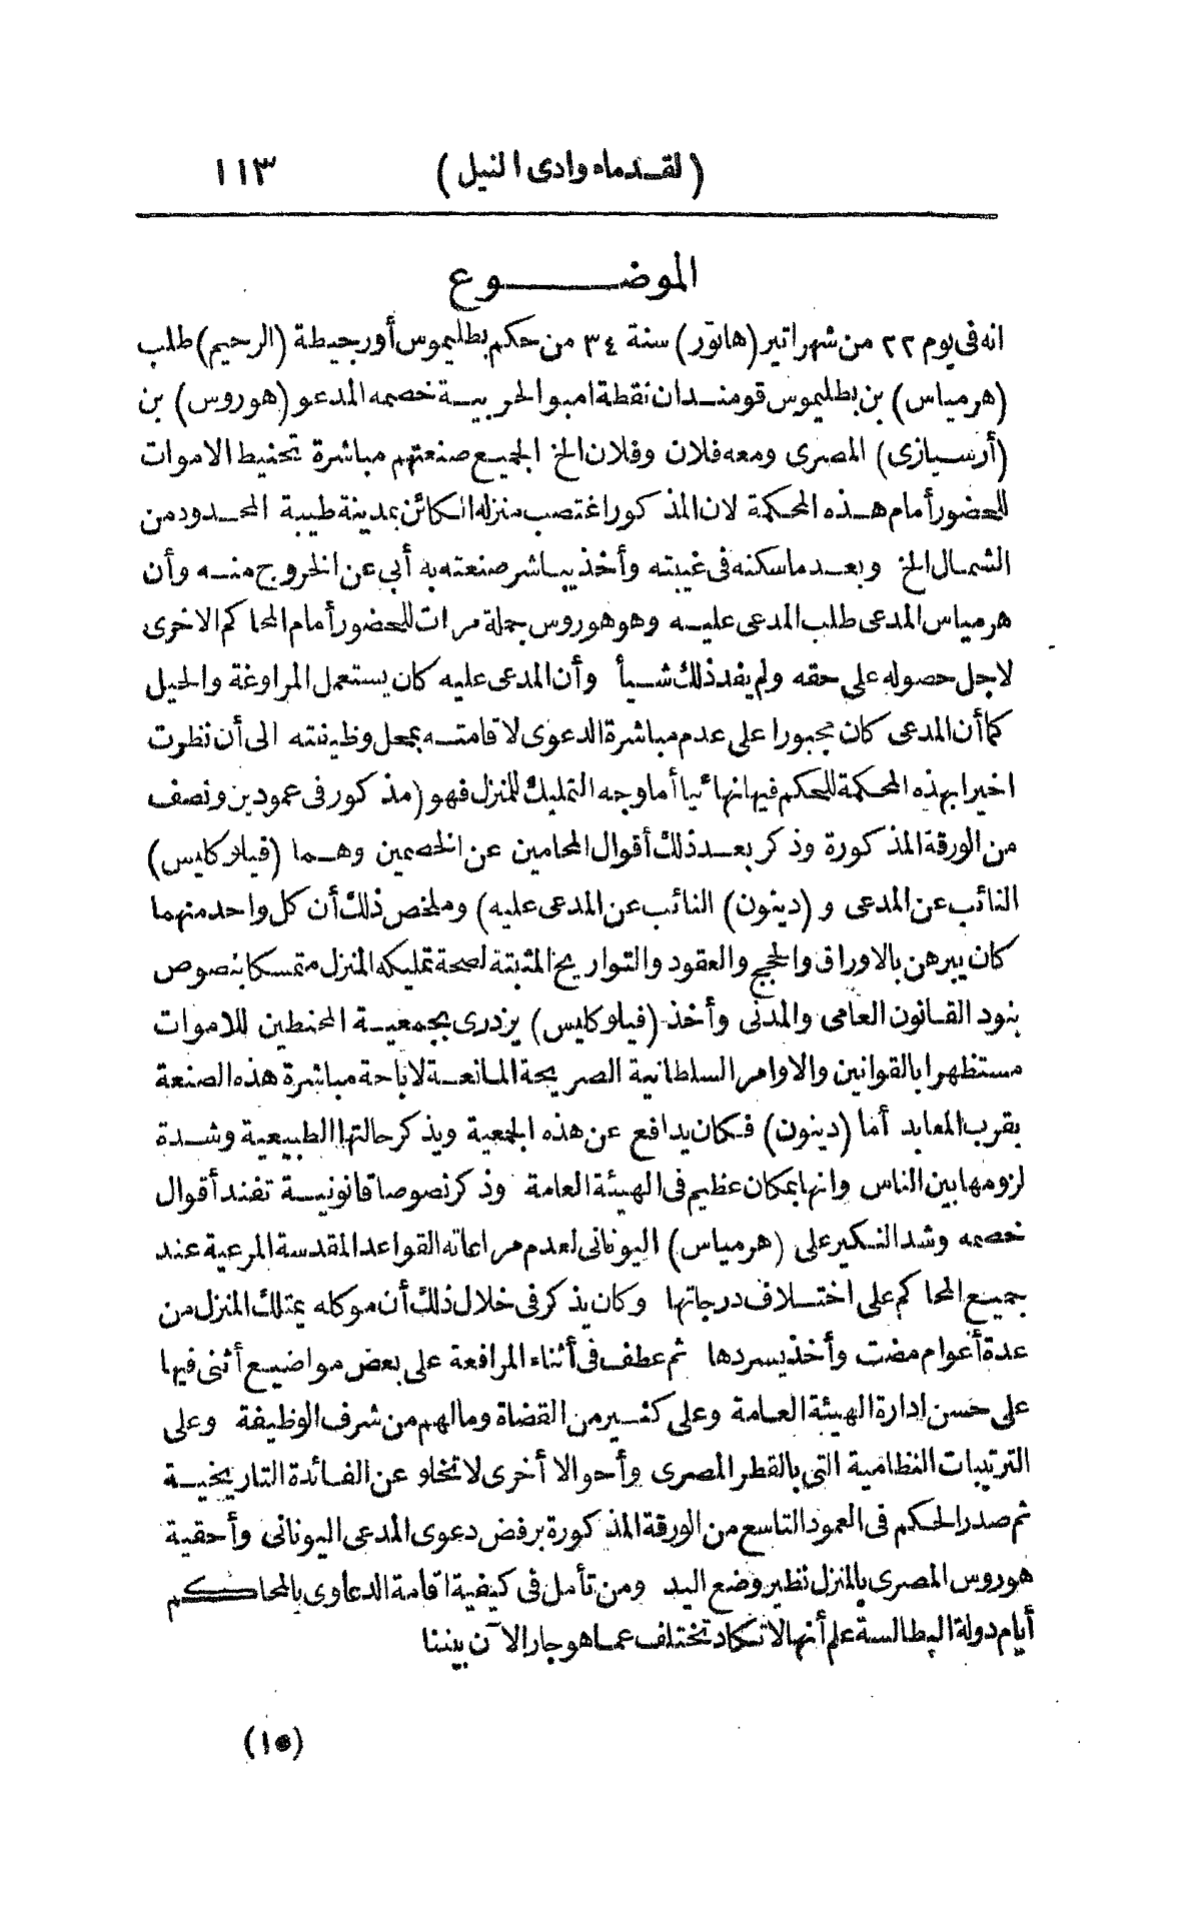 (لقدماء وادى النيل) ١١٣
الموضوع
انه فى يوم ٢٢ من شهر اتير (هاتور) سنة ٣٤ من حكم بطليموس أورجيطة (الرحيم) طلب
(هرمياس) بن بطليموس قومندان نقطة امبو الحربية خصمه المدعو (هوروس) بن
(أرسيازى) المصرى ومعه فلان وفلان الخ الجميع صنعتهم مباشرة تحنيط الاموات
للحضور أمام هذه المحكمة لان المذكور اغتصب منزله الكائن بمدينة طيبة المحدود من
الشمال الخ وبعد ما سكنه فى غيبته وأخذ يباشر صنعته به أبى عن الخروج منه وأن
هرمياس المدعى طلب المدعى عليه وهو هوروس جملة مرات للحضور أمام المحاكم الاخرى
لاجل حصوله على حقه ولم يفد ذلك شيأ وأن المدعى عليه كان يستعمل المراوغة والحيل
كما أن المدعى كان مجبورا على عدم مباشرة الدعوى لاقامته بمحل وظيفته الى أن نظرت
اخيرا بهذه المحكمة للحكم فيها نهائيا أما وجه التمليك للمنزل فهو (مذكور فى عمودين ونصف
من الورقة المذكورة وذكر بعد ذلك أقوال المحامين عن الخصمين وهما (فيلوكليس)
النائب عن المدعى و (دينون) النائب عن المدعى عليه) وملخص ذلك أن كل واحد منهما
كان يبرهن بالاوراق والحجج والعقود والتواريخ المثبتة لصحة تمليكه المنزل متمسكا بنصوص
بنود القانون العامى والمدنى وأخذ (فيلوكليس) يزدرى بجمعية المحنطين للاموات
مستظهرا بالقوانين والاوامر السلطانية الصريحة المانعة لاباحة مباشرة هذه الصنعة
بقرب المعابد أما (دينون) فكان يدافع عن هذه الجمعية ويذكر حالتها الطبيعية وشدة
لزومها بين الناس وانها بمكان عظيم فى الهيئة العامة وذكر نصوصا قانونية تفند أقوال
خصمه وشد النكير على (هرمياس) اليونانى لعدم مراعاته القواعد المقدسة المرعية عند
جميع المحاكم على اختلاف درجاتها وكان يذكر فى خلال ذلك أن موكله يمتلك المنزل من
عدة أعوام مضت وأخذ يسردها ثم عطف فى أثناء المرافعة على بعض مواضيع أثنى فيها
على حسن ادارة الهيئة العامة وعلى كثير من القضاة ومالهم من شرف الوظيفة وعلى
الترتيبات النظامية التى بالقطر المصرى وأحوالا أخرى لا تخلو عن الفائدة التاريخية
ثم صدر الحكم فى العمود التاسع من الورقة المذكورة برفض دعوى المدعى اليونانى وأحقية
هوروس المصرى بالمنزل نظير وضع اليد ومن تأمل فى كيفية اقامة الدعاوى بالمحاكم
أيام دولة البطالسة علم أنها لا تكاد تختلف عما هو جار الآن بيننا
(١٥)